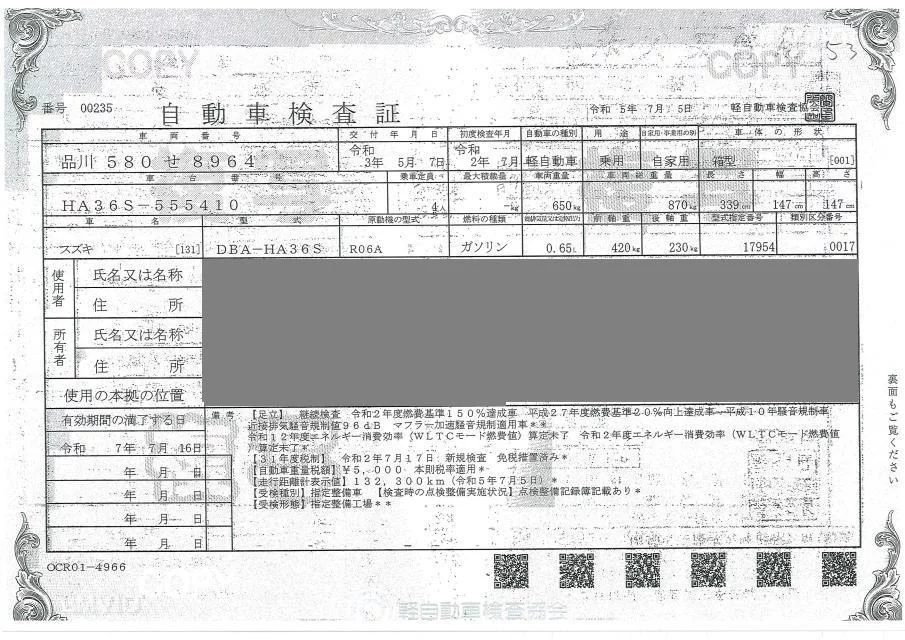 COPY
COPY
53
番号 00235
自動車検査証
令和 5年 7月 5日 軽自動車検査協会
車両番号 交付年月日 初度検査年月 自動車の種別 用途 自家用・事業用の別 車体の形状
品川 580 せ 8964 令和 3年 5月 7日 令和 2年 7月 軽自動車 乗用 自家用 箱型 [001]
車台番号 乗車定員 最大積載量 車両重量 車両総重量 長さ 幅 高さ
HA36S-555410 4人 -kg 650kg 870kg 339cm 147cm 147cm
車名 型式 原動機の型式 燃料の種類 前軸重 後軸重 型式指定番号 類別区分番号
スズキ [131] DBA-HA36S R06A ガソリン 0.65L 420kg 230kg 17954 0017
使用者 氏名又は名称
住所
所有者 氏名又は名称
住所
使用の本拠の位置
有効期間の満了する日
令和 7年 7月 16日
年 月 日
年 月 日
年 月 日
年 月 日
備考
【足立】 継続検査 令和2年度燃費基準150%達成車 平成27年度燃費基準20%向上達成車 平成10年騒音規制車
近接排気騒音規制値96dB マフラー加速騒音規制適用車**
令和12年度エネルギー消費効率(WLTCモード燃費値)算定未了 令和2年度エネルギー消費効率(WLTCモード燃費値
)算定未了*
【31年度税制】 令和2年7月17日 新規検査 免税措置済み*
【自動車重量税額】¥5,000 本則税率適用*
【走行距離計表示値】132,300km(令和5年7月5日)*
【受検種別】指定整備車 【検査時の点検整備実施状況】点検整備記録簿記載あり*
【受検形態】指定整備工場**
裏面もご覧ください
OCR01-4966
軽自動車検査協会